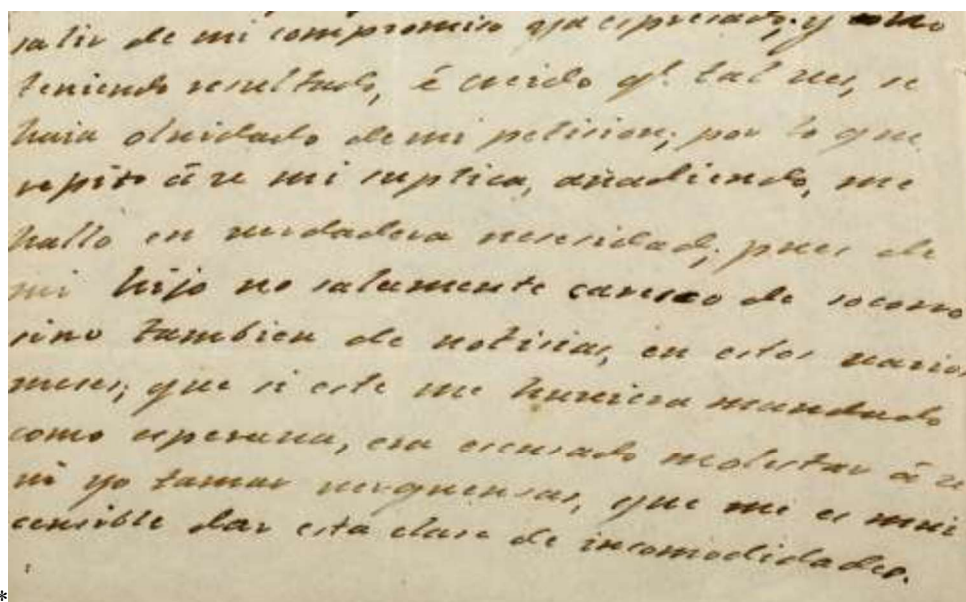 salir de mi compromiso ya espresado; y no
teniendo resultado, é creido qᵉ. tal ves, se
haia olvidado de mi petision; por lo que
repito á ve mi suplica, añadiendo, me
hallo en verdadera nesesidad; pues de
mi hijo no salamente caresco de socorro
sino tambien de notisias, en estos varios
meses; que si este me huviera mandado
como esperava, era escusado molestar á ve
ni yo tamar verguensas, que me es mui
censible dar esta clase de incomodidades.